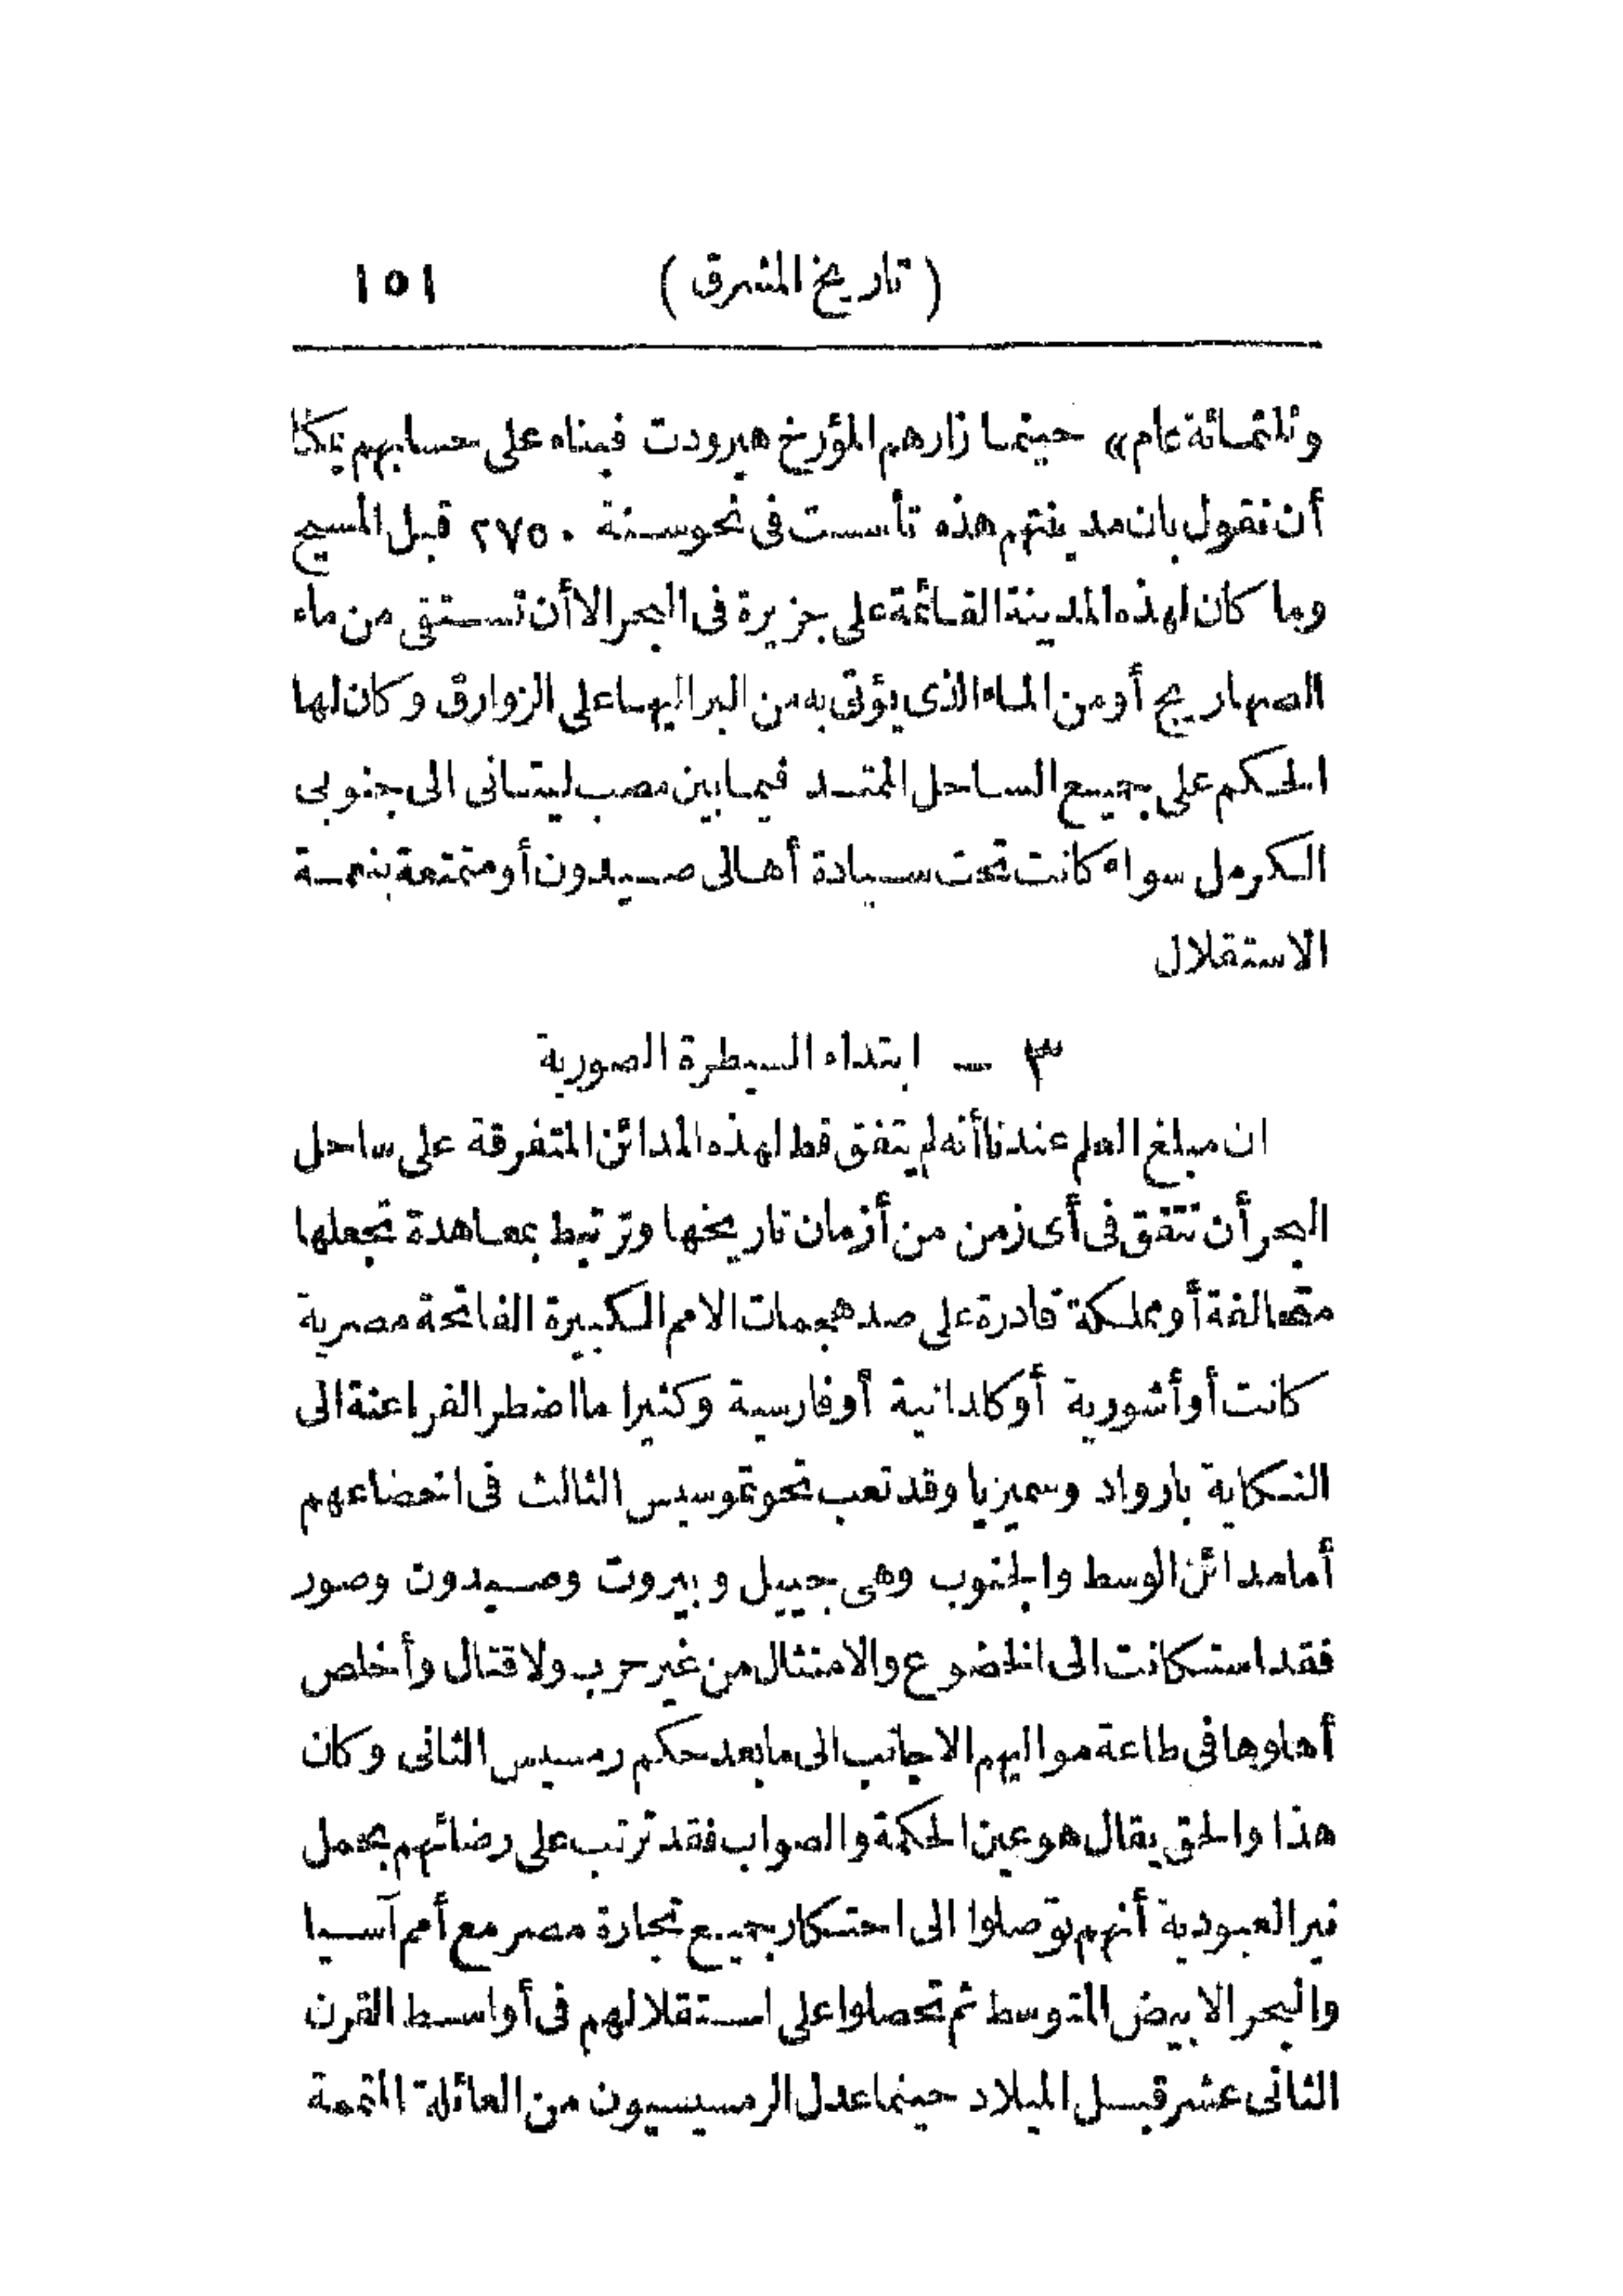 ( تاريخ المشرق ) ١٥١
وثلثمائة عام» حينما زارهم المؤرخ هيرودت فبناء على حسابهم يمكنا
أن نقول بان مدينتهم هذه تأسست فى نحو سنة ٢٧٥٠ قبل المسيح
وما كان لهذه المدينة القائمة على جزيرة فى البحر الا أن تستقى من ماء
الصهاريج أو من الماء الذى يؤتى به من البر اليها على الزوارق وكان لها
الحكم على جميع الساحل الممتد فيما بين مصب ليتانى الى جنوبى
الكرمل سواء كانت تحت سيادة أهالى صيدون أو متمتعة بنعمة
الاستقلال
٣ – ابتداء السيطرة الصورية
ان مبلغ العلم عندنا أنه لم يتفق قط لهذه المدائن المتفرقة على ساحل
البحر أن تتفق فى أى زمن من أزمان تاريخها وترتبط بمعاهدة تجعلها
متحالفة أو مملكة قادرة على صد هجمات الامم الكبيرة الفاتحة مصرية
كانت أو أشورية أو كلدانية أو فارسية وكثيرا ما اضطر الفراعنة الى
النكاية بارواد وسميزيا وقد تعب تحوتموسيس الثالث فى اخضاعهم
أما مدائن الوسط والجنوب وهى جبيل وبيروت وصيدون وصور
فقد استكانت الى الخضوع والامتثال من غير حرب ولا قتال وأخلص
أهلوها فى طاعة مواليهم الاجانب الى ما بعد حكم رمسيس الثانى وكان
هذا والحق يقال هو عين الحكمة والصواب فقد ترتب على رضائهم بحمل
نير العبودية أنهم توصلوا الى احتكار جميع تجارة مصر مع أمم آسيا
والبحر الابيض المتوسط ثم تحصلوا على استقلالهم فى أواسط القرن
الثانى عشر قبل الميلاد حينما عدل الرمسيسيون من العائلة المتممة